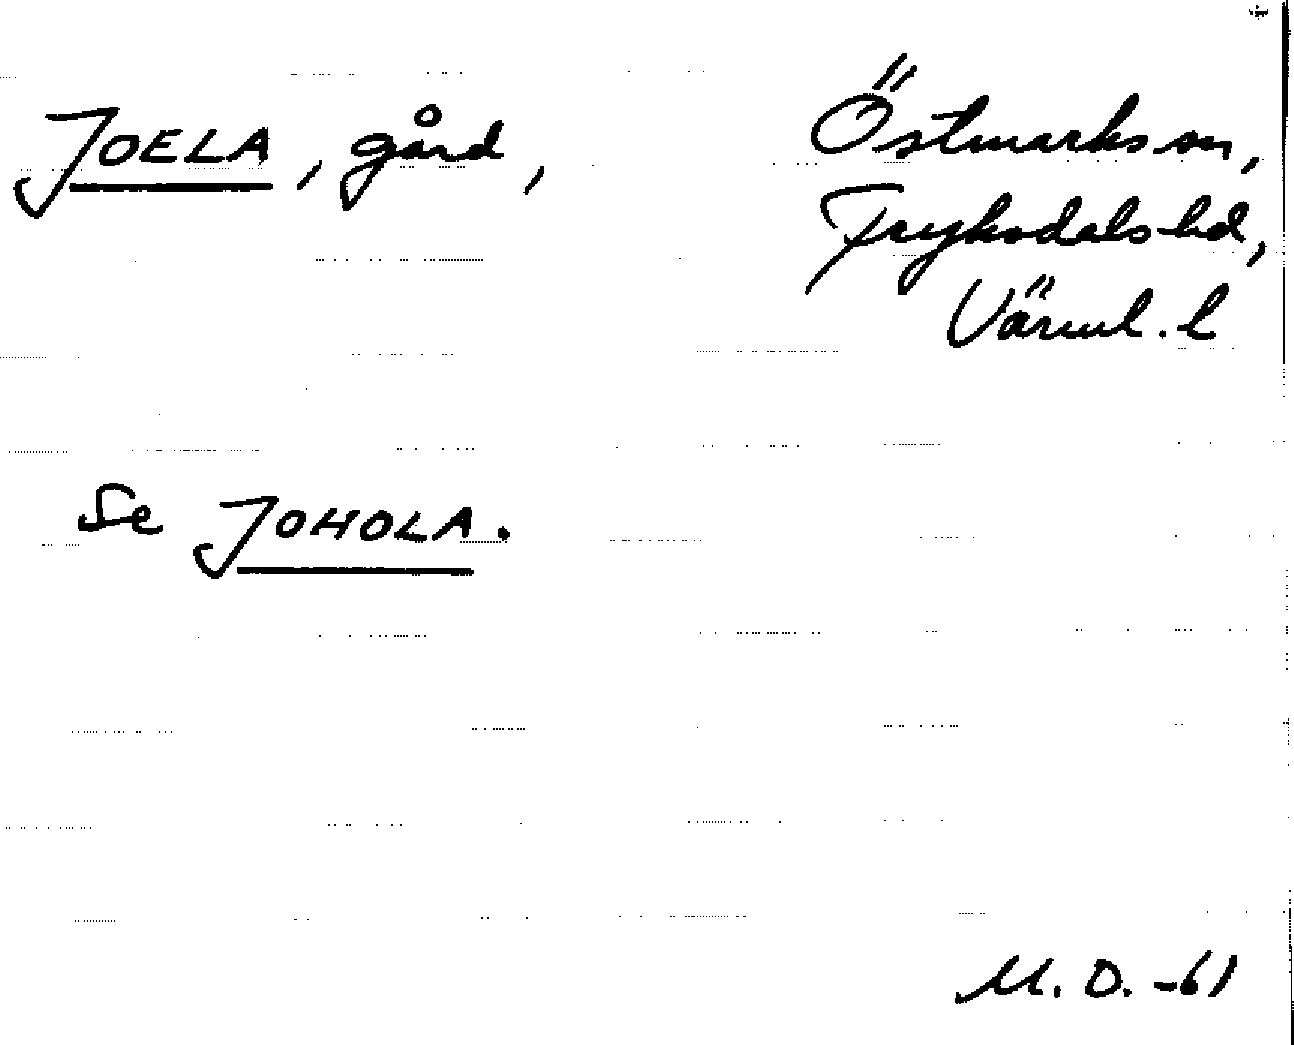 JOELA, gård,
Östmarks sn,
Fryksdals hd,
Värml. l
Se JOHOLA.
M. O. -61